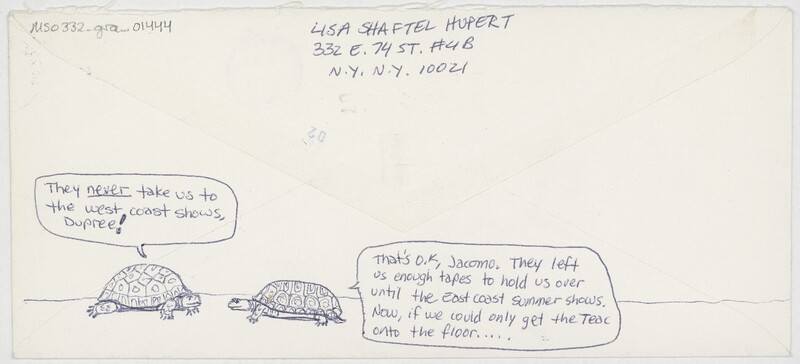 MS0332_gra_01444
LISA SHAFTEL HUPERT
332 E. 74 ST. #4B
N.Y. N.Y. 10021
They never take us to
the west coast shows,
Dupree!
That's O.K, Jacomo. They left
us enough tapes to hold us over
until the East coast summer shows.
Now, if we could only get the Teac
onto the floor.....